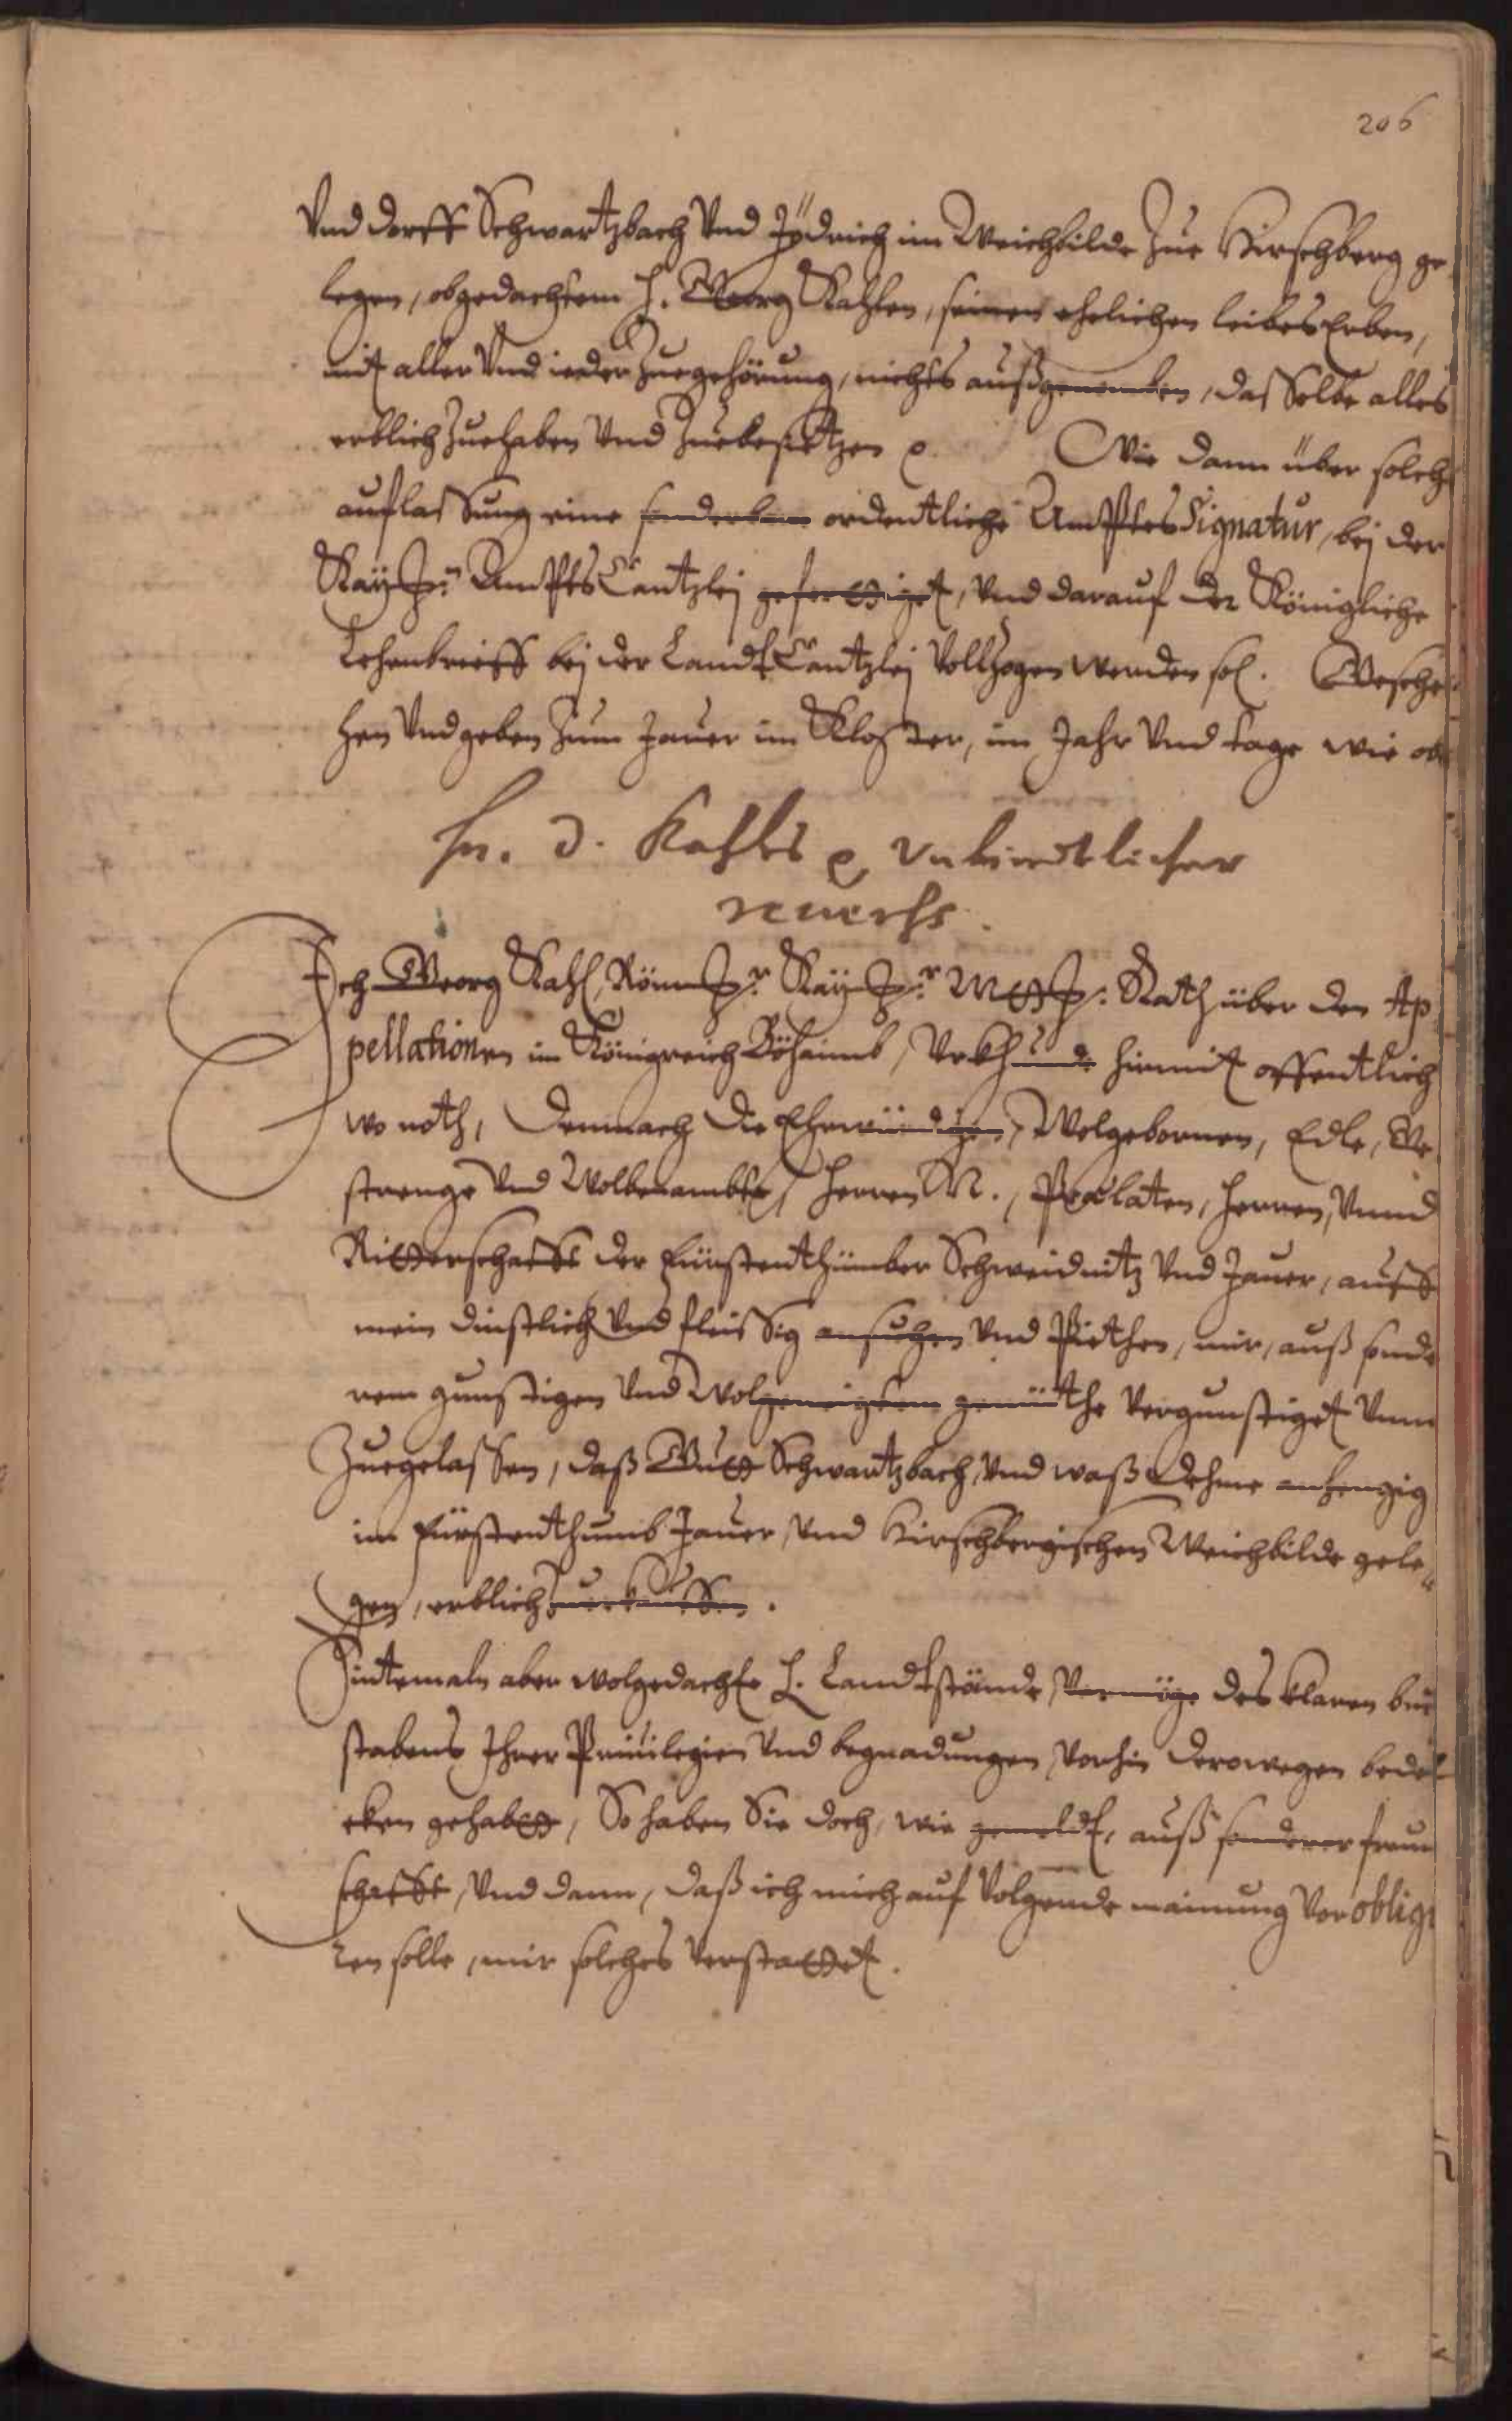 206
Vnd dorff Schwartzbach Vnd Jödrich im Weichbilde Zue Hirschberg ge
legen, obgedachtem H. Georg Kahlen, seinen ehelichen leibes Erben,
mit aller Vnd ieder Zuegehörung, nichts außgenomben, dasselbe alles
erblich Zuehaben Vnd Zuebesitzen Wie dann über solche
auflassung eine sonderbare ordentliche AmbtesSignatur, bej der
Kay: AmbtsCantzlej gefertiget, Vnd darauf der Königliche
Lehenbrieff bej der LandtCantzlej Vollzogen werden sol. Gesche
hen Vnd geben Zum Jauer im Kloster, im Jahr Vnd tage wie ob
Hn. D. Kahls Vnbindtlicher
reuerß.
Ich Georg Kahl, Röm: Kay: Mtt: Rath über den Ap
pellationen im Königreich Böhaimb, Vrkhunde hiermit offentlich
wo noth, Demnach die Ehrwürdigen, Wolgebornen, Edle, Ge
strenge Vnd Wolbenambte, Herren N., Praelaten, Herren, Vnnd
Ritterschafft der Fürstenthümber Schweidnitz Vnd Jauer, auff
mein dinstlich Vnd fleissig ansuchen Vnd Piethen, mir, auß sonde
rem gunstigen Vnd Wolgeneigtem gemüthe Vergunstiget Vnnd
Zuegelassen, daß Gutt Schwartzbach, Vnd waß dehme anhengig
im Fürstenthumb Jauer, Vnd Hirschbergischen Weichbilde gele
gen, erblich Zuerkauffen.
Sintemaln aber wolgedachte H. Landtstände, Vermöge des klaren bue
stabens Ihrer Priuilegien Vnd begnadungen, Vorhin derowegen beden
cken gehabtt, So haben Sie doch, wie gemeldt, auß sonderer freun
schafft, Vnd dann, daß ich mich auf Volgende mainung Verobligi
ren solle, mir solches Verstattet.